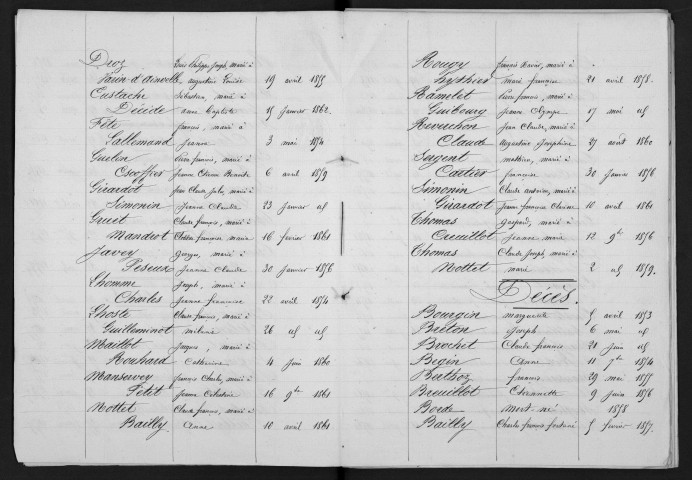 Droz Pierre Philippe Joseph, marié à
Varin-d'ainvelle, augustine Louise 19 avril 1855
Eustache Sébastien, marié à
Décide anne Baptiste 15 janvier 1862
Fête françois, marié à
Lallemand jeanne 3 mai 1854
Guelin Pierre françois, marié à
jeanne Etienne 6 avril 1859
Girardot Jean Claude Jules, marié à
Simonin Jeanne Claude 23 janvier id
Gruet Claude françois, marié à
Mandrot françoise marie 16 février 1861
Javey Georges, marié à
Peseux Jeanne Claude 30 janvier 1856
Lhomme Joseph, marié à
Charles Jeanne francoise 22 avril 1854
Lhoste Claude francois, marié à
Guilleminot mélanie 26 id id
Maillot Jacques, marié à
Rouhard Catherine 4 juin 1860
Manservey francois Charles, marié à
Petit Jeanne Célestine 16 9bre 1861
Nottet Claude francois, marié à
Bailly Anne 10 avril 1861
Rougy françois Xavier, marié à
marie françoise 21 avril 1858
Ramelet Pierre francois, marié à
Guibourg Jeanne Olympe 17 mai id
Revuchon Jean Claude, marié à
Claude Augustine Joséphine 27 août 1860
Sergent mathieu, marié à
Cattier francoise 30 janvier 1856
Simonin Claude antoine, marié à
Girardot Jeanne francoise Clarisse 10 avril 1861
Thomas Gaspard, marié à
Cuillot jeanne marie 12 9bre 1856
Thomas Claude Joseph, marié à
Nottet marie 2 id 1859
Décès.
Bourgin marguerite 5 avril 1853
Breton Joseph 6 mai id
Brochet Claude francois 21 juin id
Begin Anne 11 7bre 1854
Berthoz francois 29 mai 1855
Breuillot Etiennette 9 juin 1856
Borde mort-né 1858
Bailly Charles francois fortuné 5 février 1857